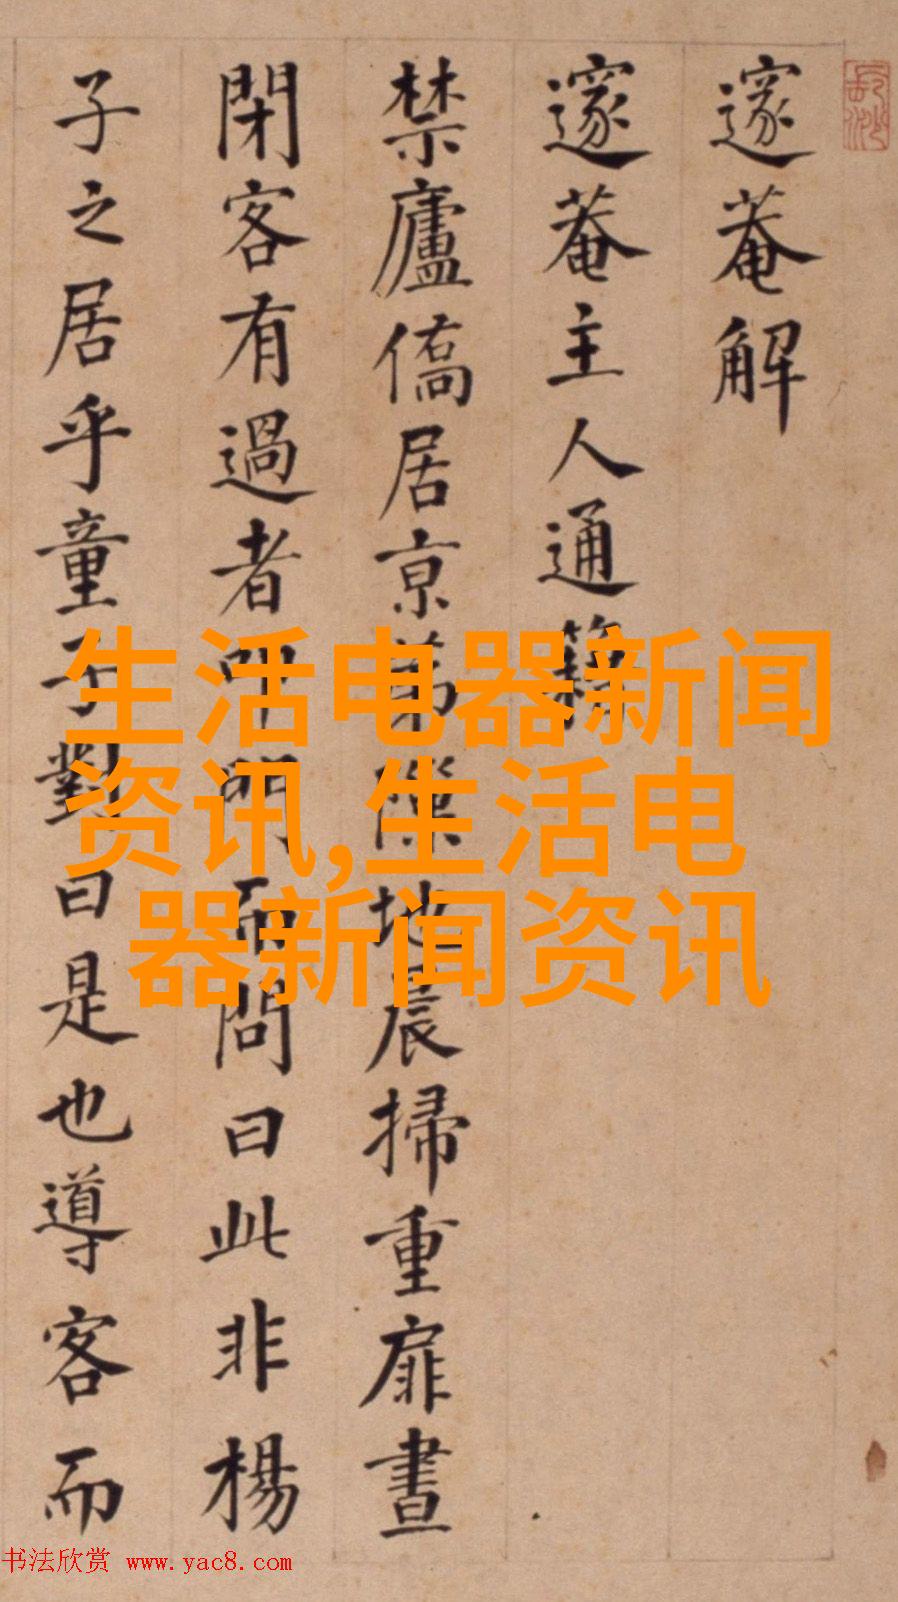 邃菴解
邃菴主人通籍
禁廬僑居京第隙地晨掃重扉晝
閉客有過者叩門而問曰此非楊
子之居乎童子對曰是也導客而
生活电器新闻
资讯,生活电
器新闻资讯
书法欣赏 www.yac8.com